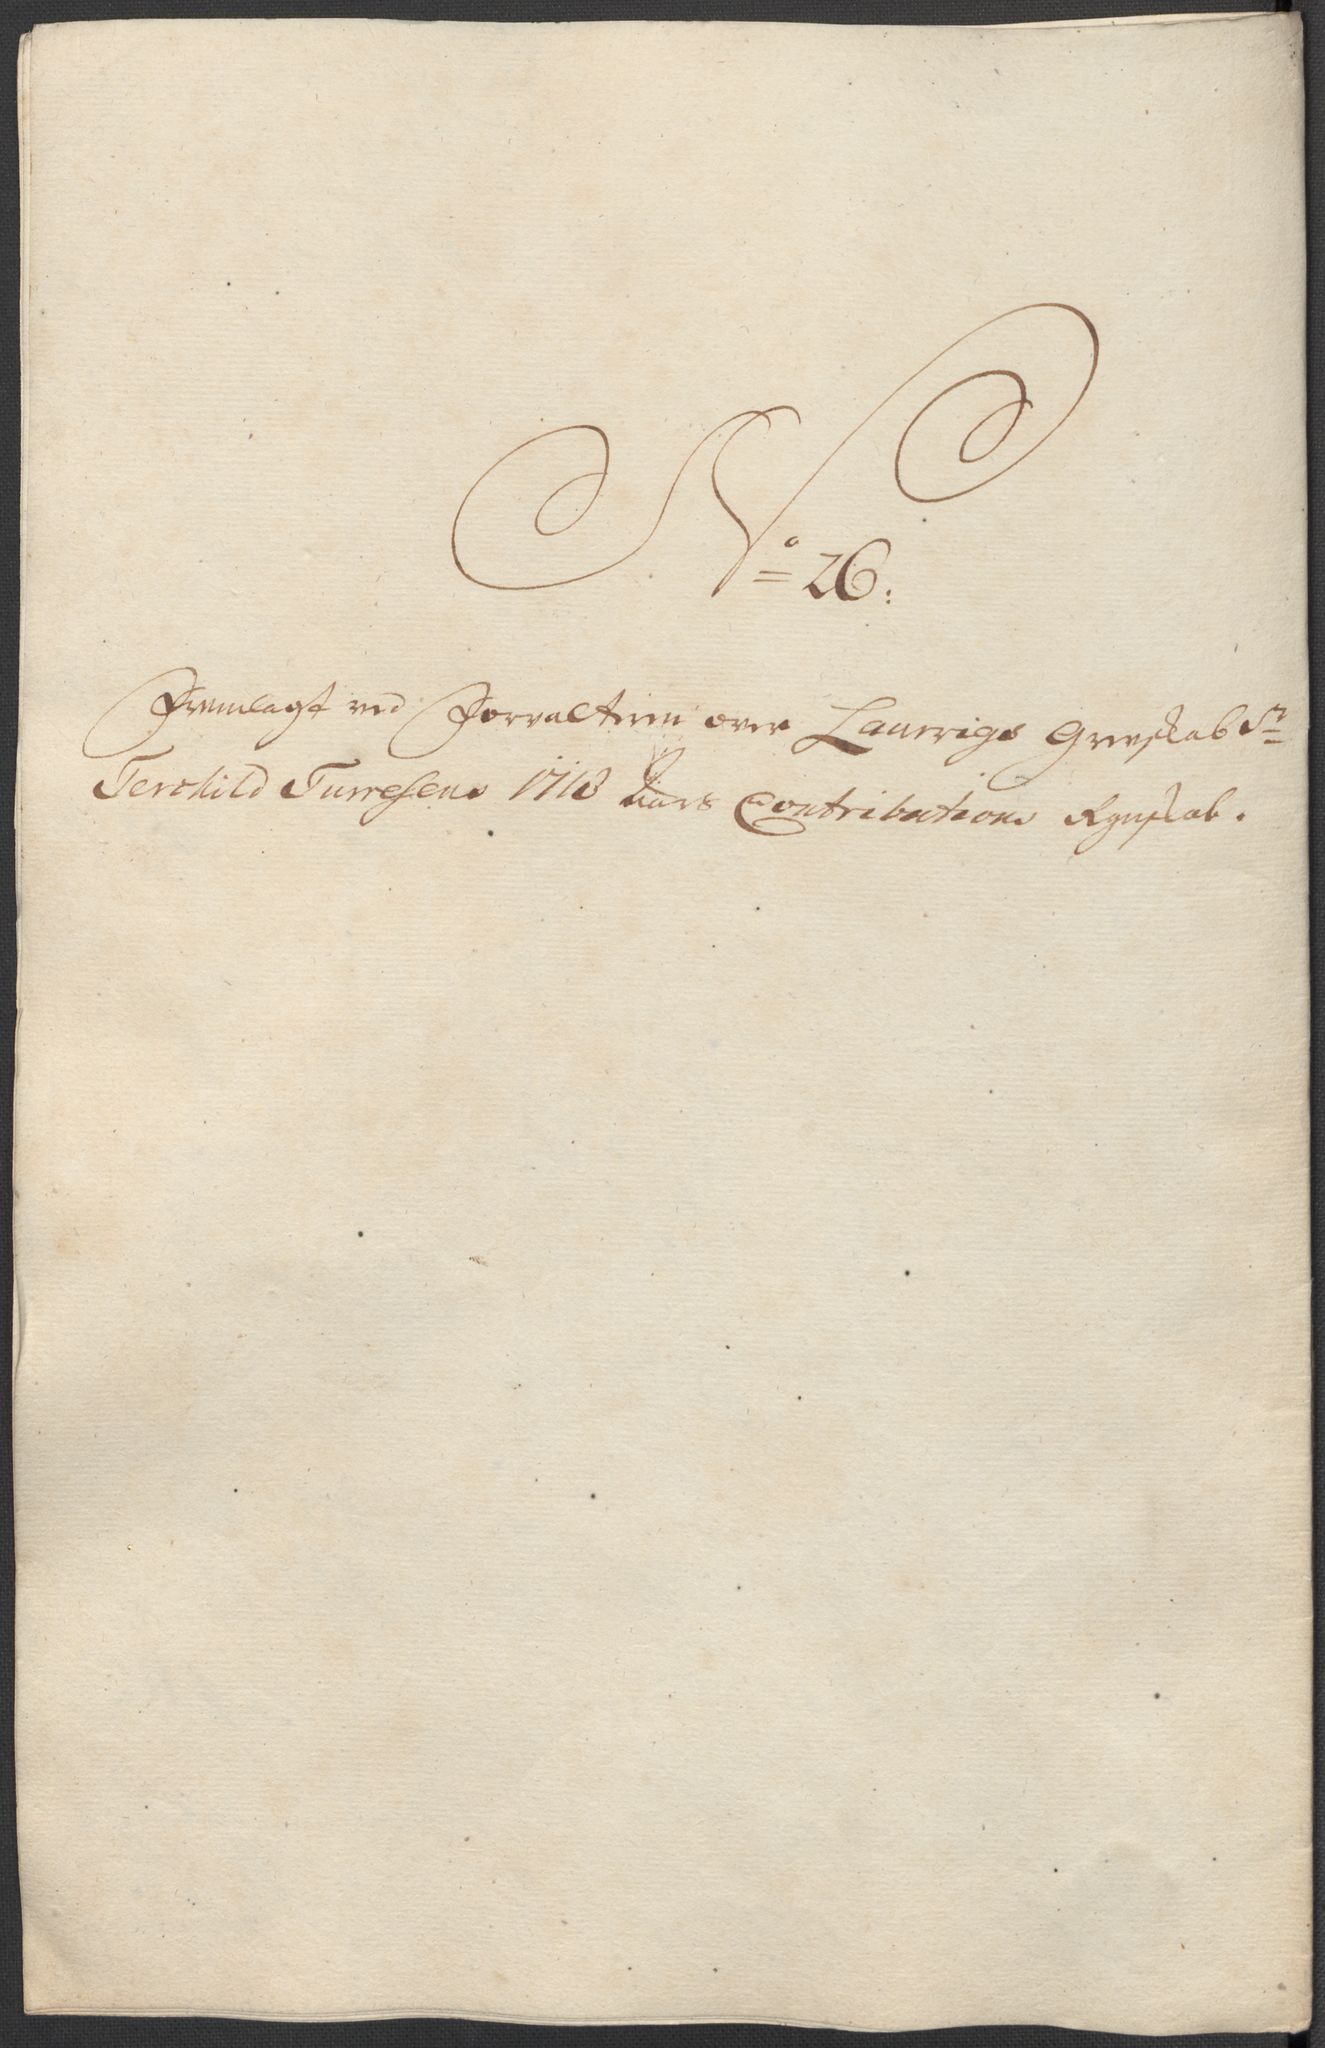 No 26:
Fremlagt ved Forvalteren over Laurvigs Grevskab Sr
Terchild Turresens 1718 Aars Contributions Regnskab.